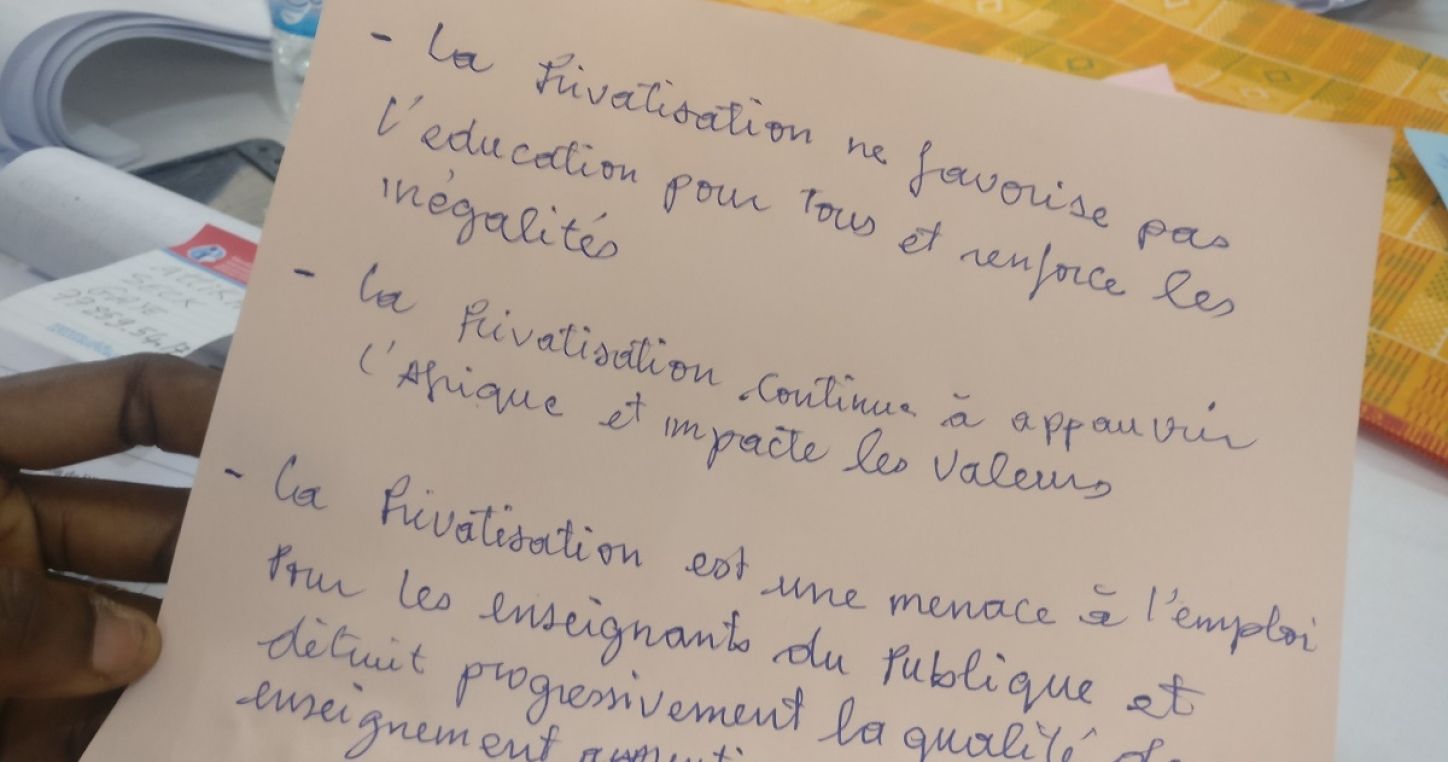 - La Privatisation ne favorise pas
l'education pour Tous et renforce les
inégalités
- La Privatisation continue à appauvrir
l'Afrique et impacte les valeurs
- La Privatisation est une menace à l'emploi
Pour les enseignants du Publique et
détruit progressivement la qualité de
enseignement
SECK